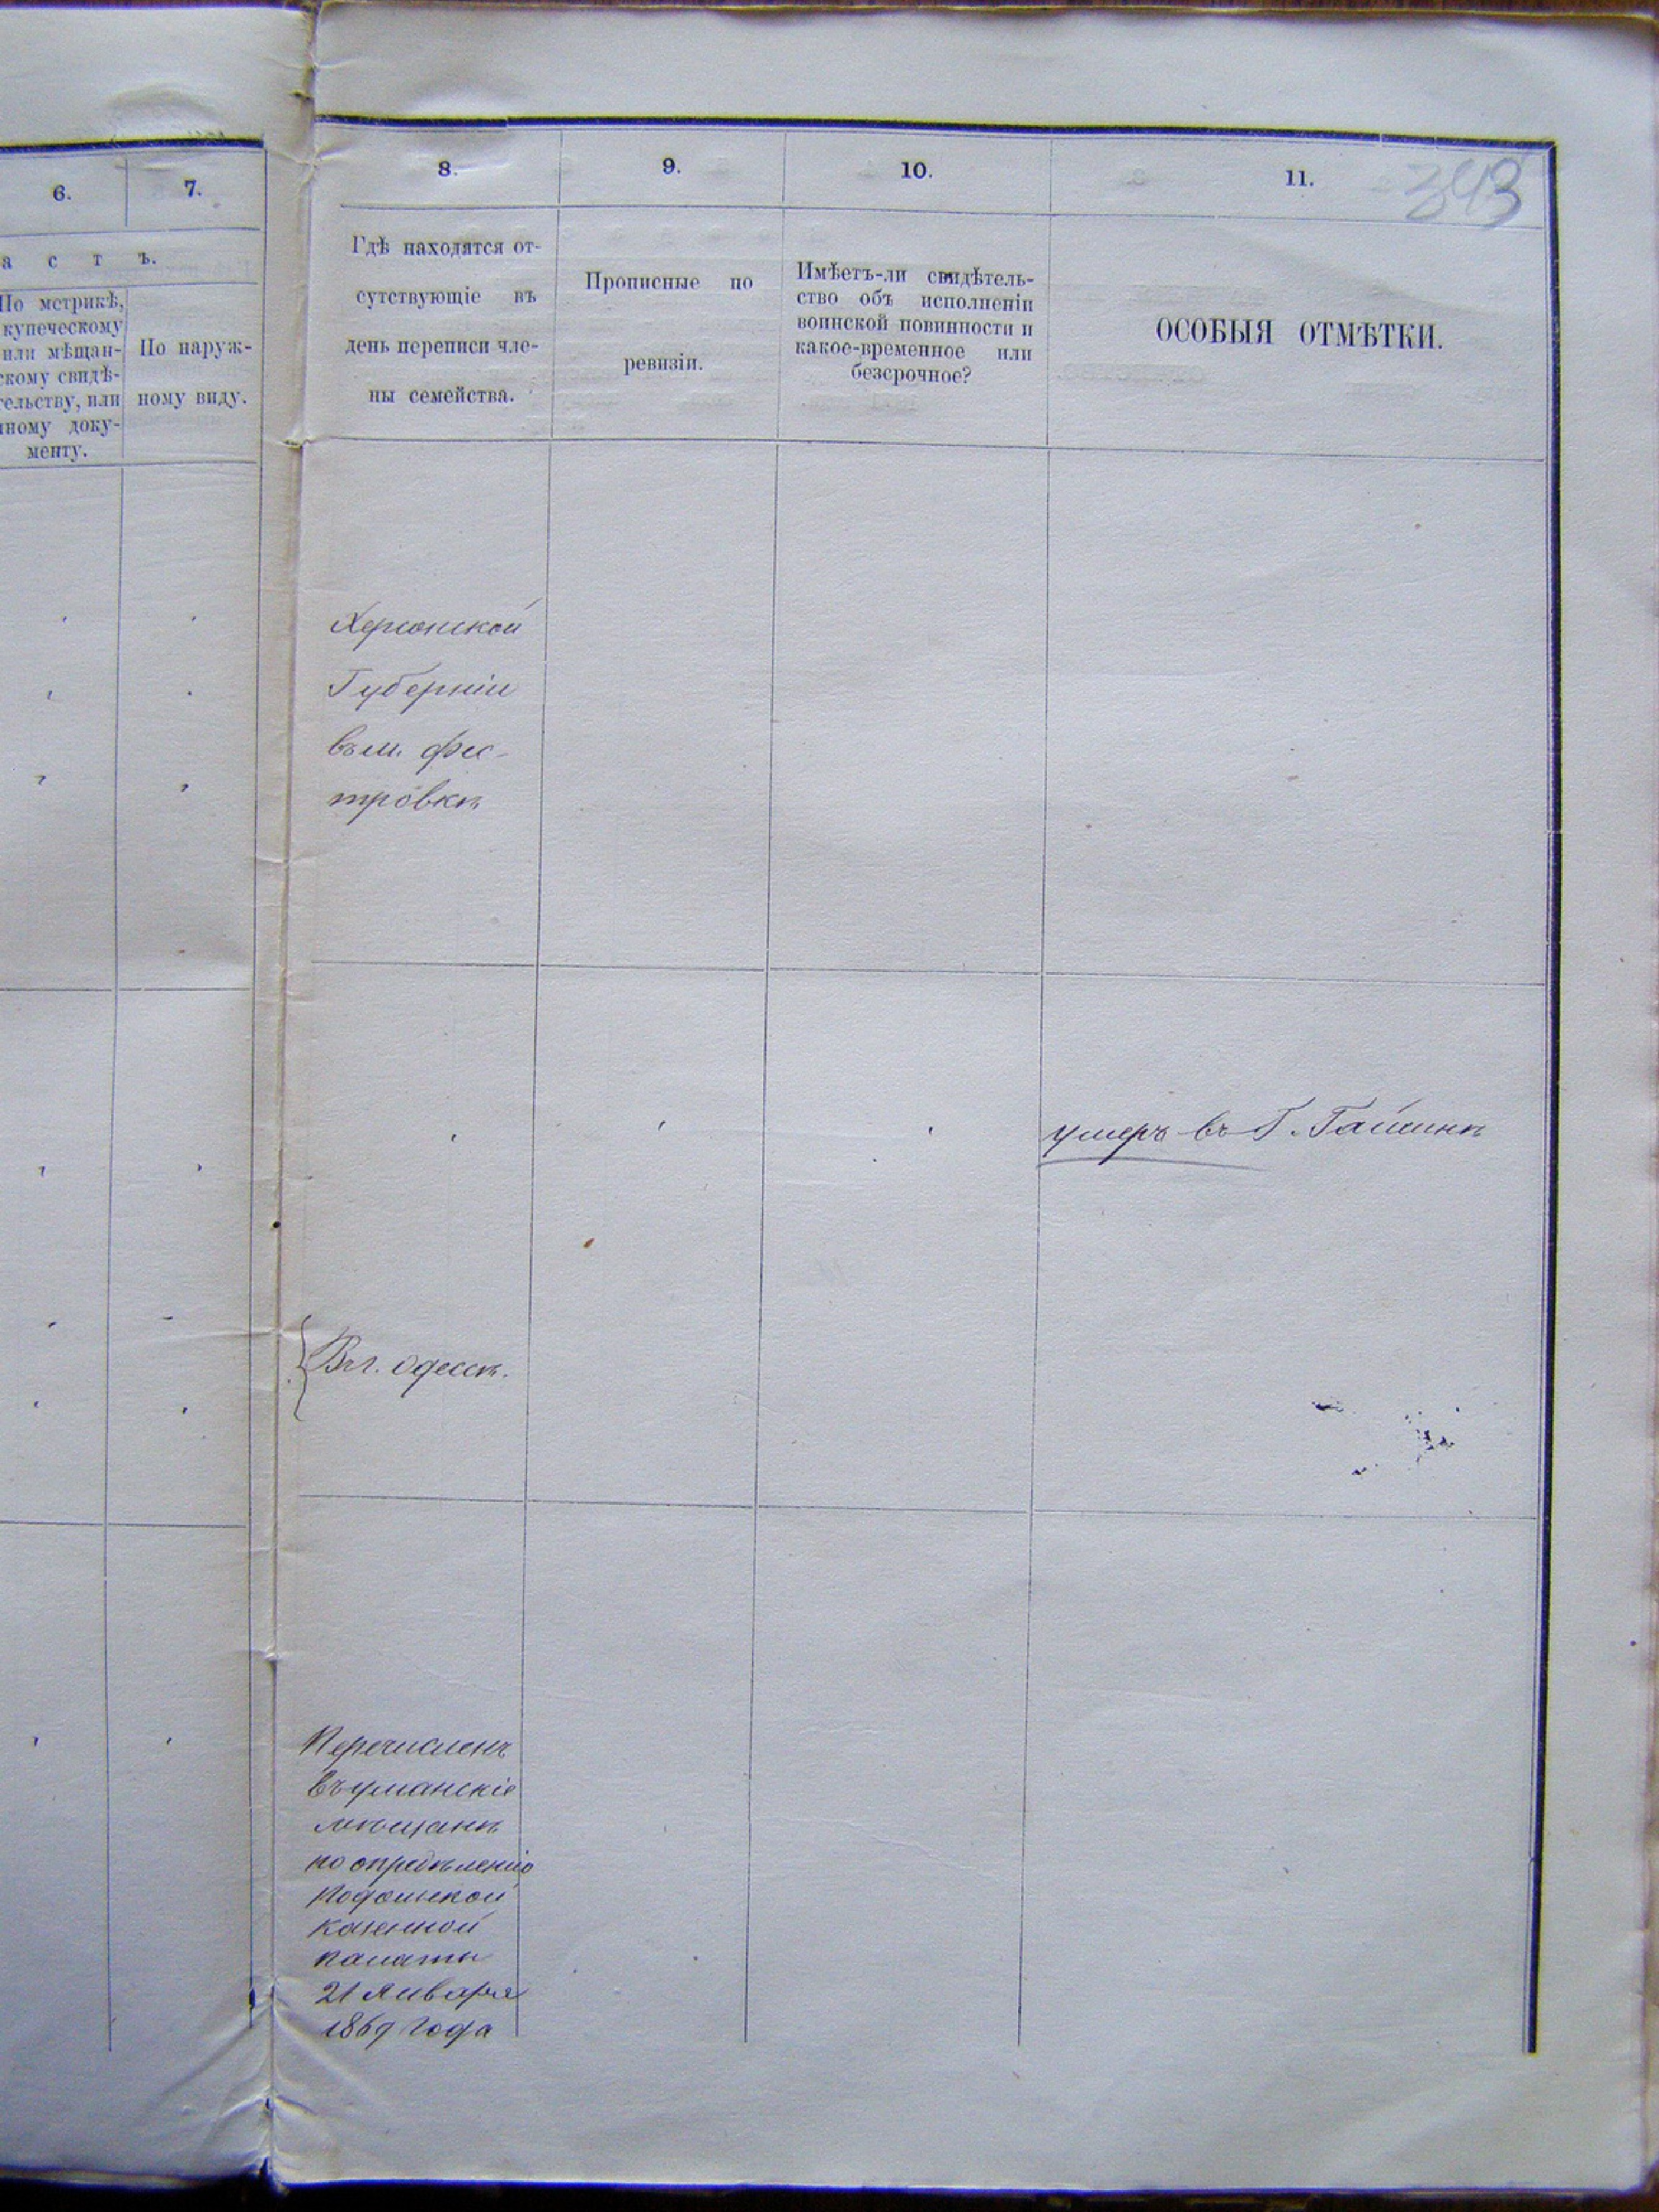 6.
7.
а с т ъ.
По метрикѣ,
купеческому
или мѣщан-
скому свидѣ-
тельству, или
иному доку-
менту.
По наруж-
ному виду.
8.
9.
10.
11.
343
Гдѣ находятся от-
сутствующіе въ
день переписи чле-
ны семейства.
Прописные по
ревизіи.
Имѣетъ-ли свидѣтель-
ство объ исполненіи
воинской повинности и
какое-временное или
безсрочное?
ОСОБЫЯ ОТМѢТКИ.
Херсонской
Губерніи
въ м. Фес-
тровкѣ
умеръ въ Г. Гайсинѣ
Въ г. Одессѣ.
Перечисленъ
въ уманскіе
мѣщанѣ
по опредѣленію
Подольской
казенной
палаты
21 Января
1869 года